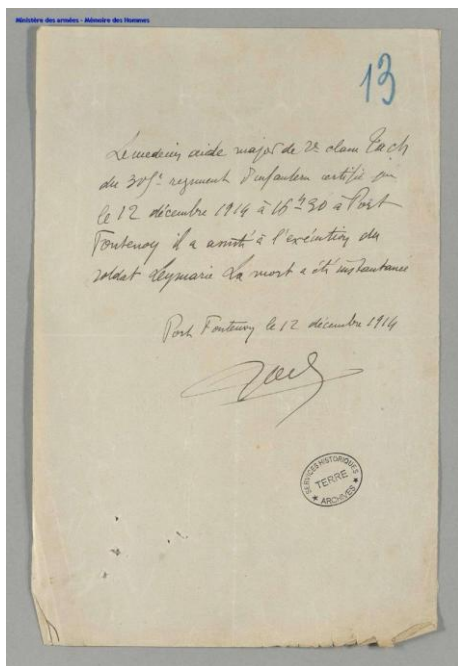 Ministère des armées - Mémoire des Hommes
13
Le medecin aide major de 2e classe
du 305e regiment d'infanterie certifie que
le 12 décembre 1914 à 16h30 à Port
Fontenoy il a assisté à l'exécution du
soldat Leymarie La mort a été instantanée
Port Fontenoy le 12 décembre 1914
SERVICES HISTORIQUES
TERRE
ARCHIVES